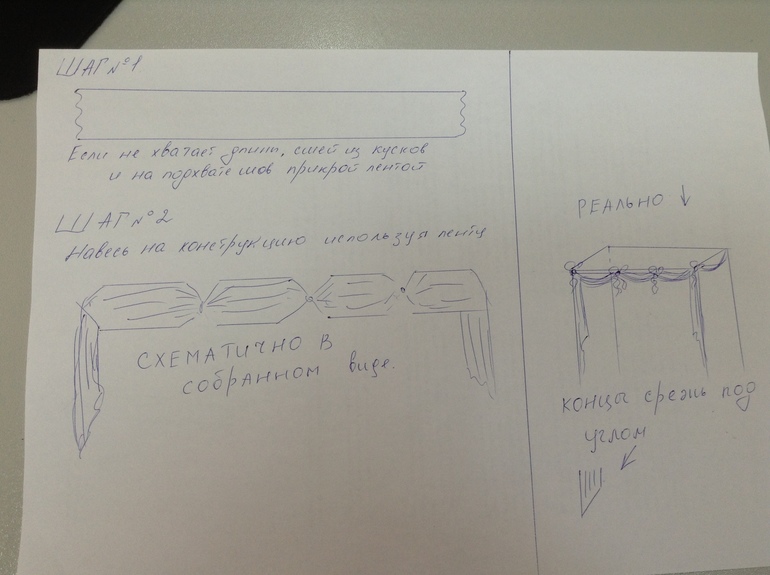 ШАГ №1
Если не хватает длины, сшей из кусков
и на подхвате шов прикрой лентой
ШАГ №2
Навесь на конструкцию используя ленту
СХЕМАТИЧНО В
собранном виде.
РЕАЛЬНО ↓
концы срежь под
углом